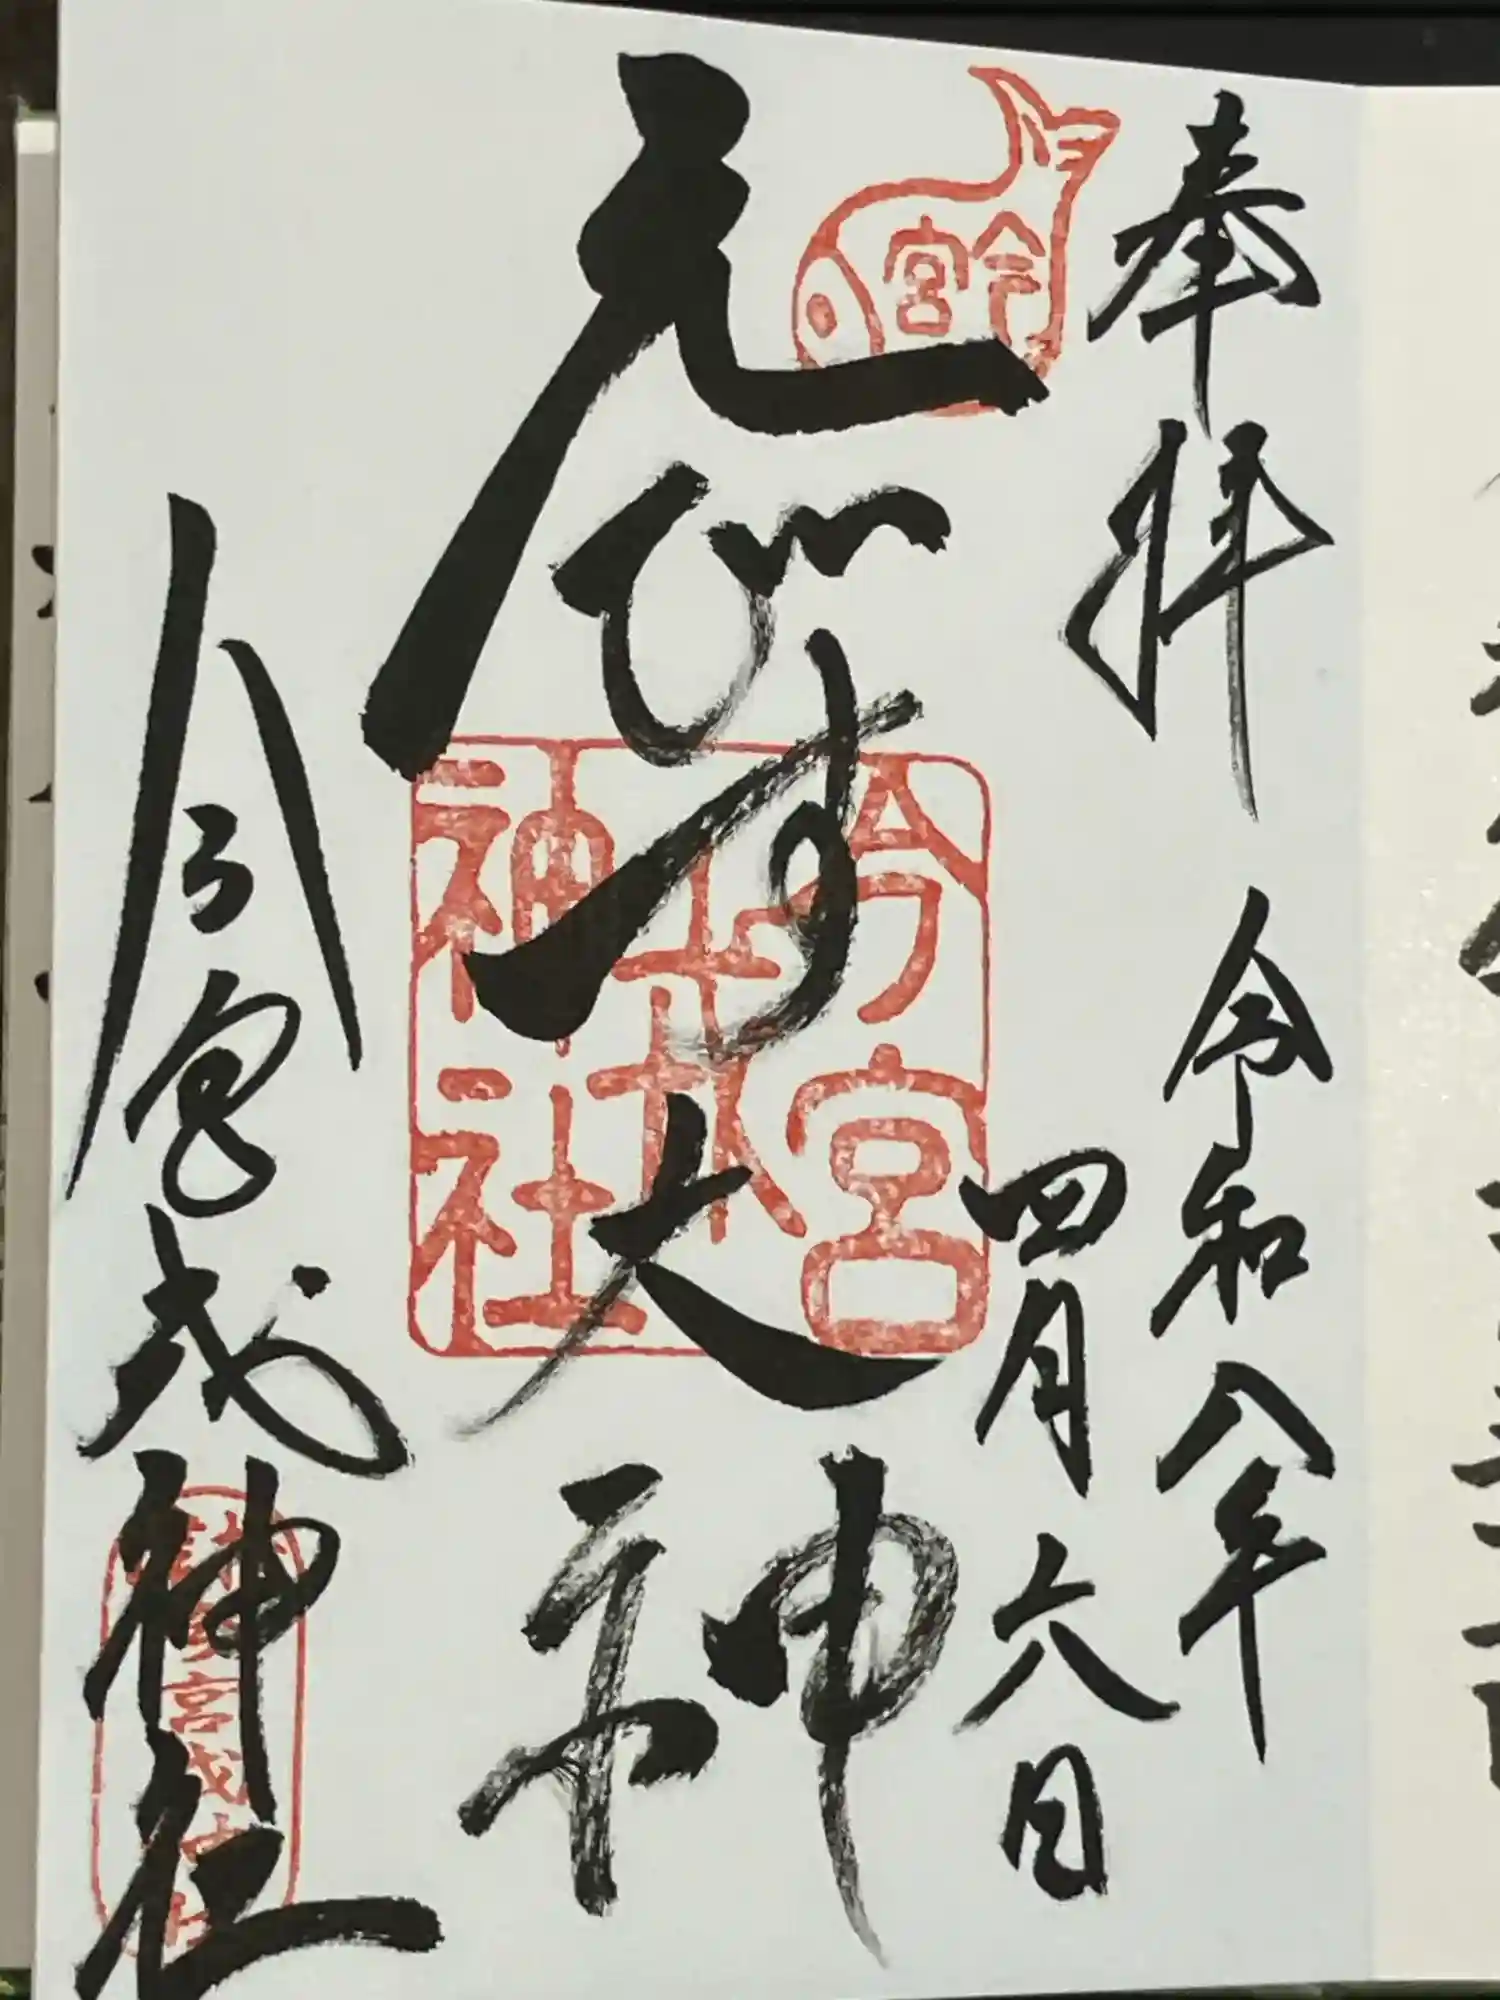 奉拝 令和八年
四月六日
今宮
えびす大神
今宮
神社
今宮戎神社